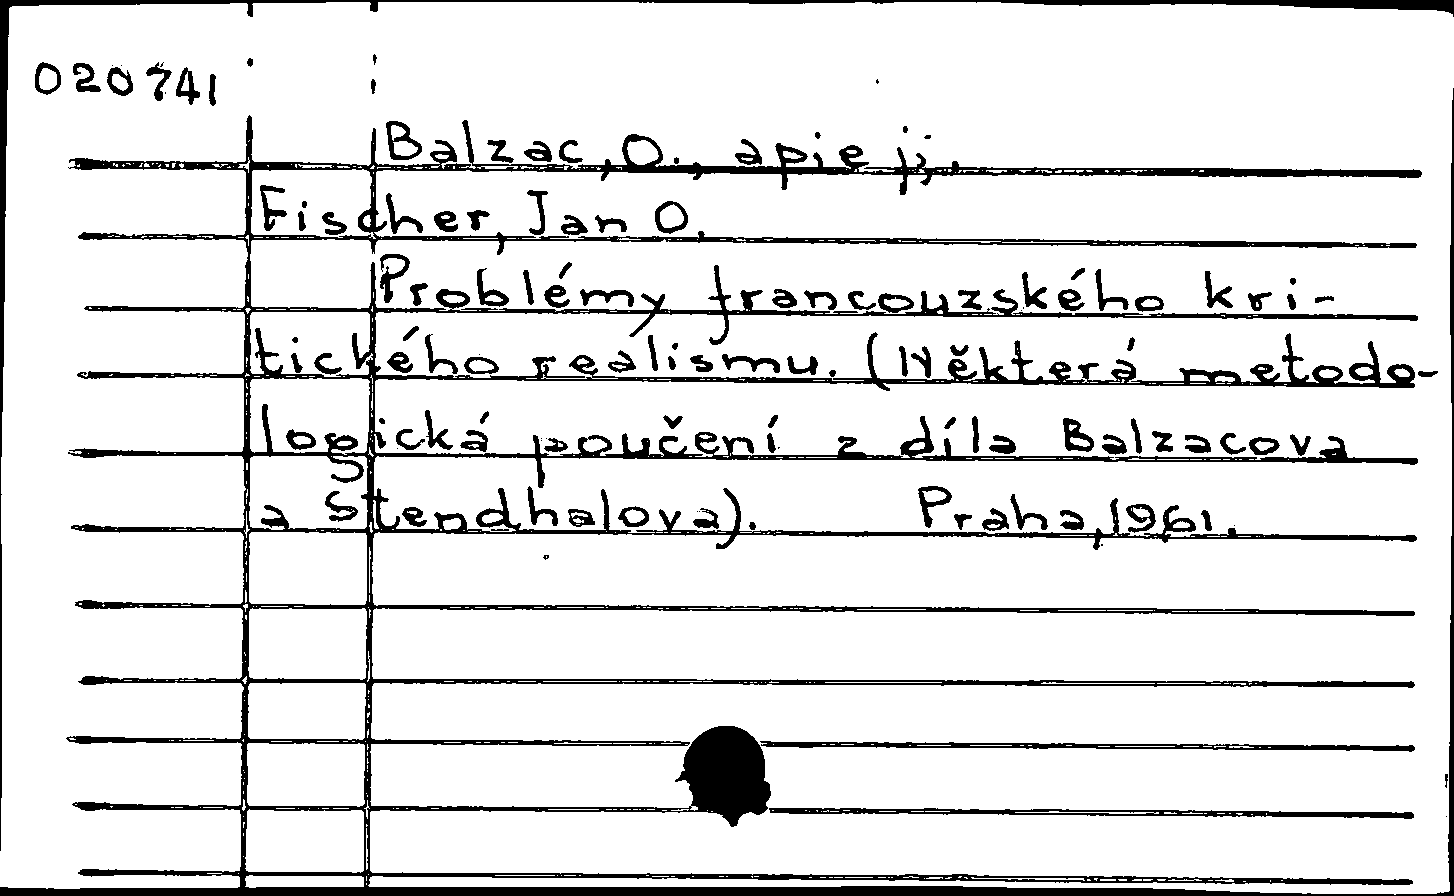 020741
Balzac, O., apie jį.
Fischer, Jan O.
Problémy francouzského kri-
tického realismu. (Některá metodo-
logická poučení z díla Balzacova
a Stendhalova). Praha, 1961.